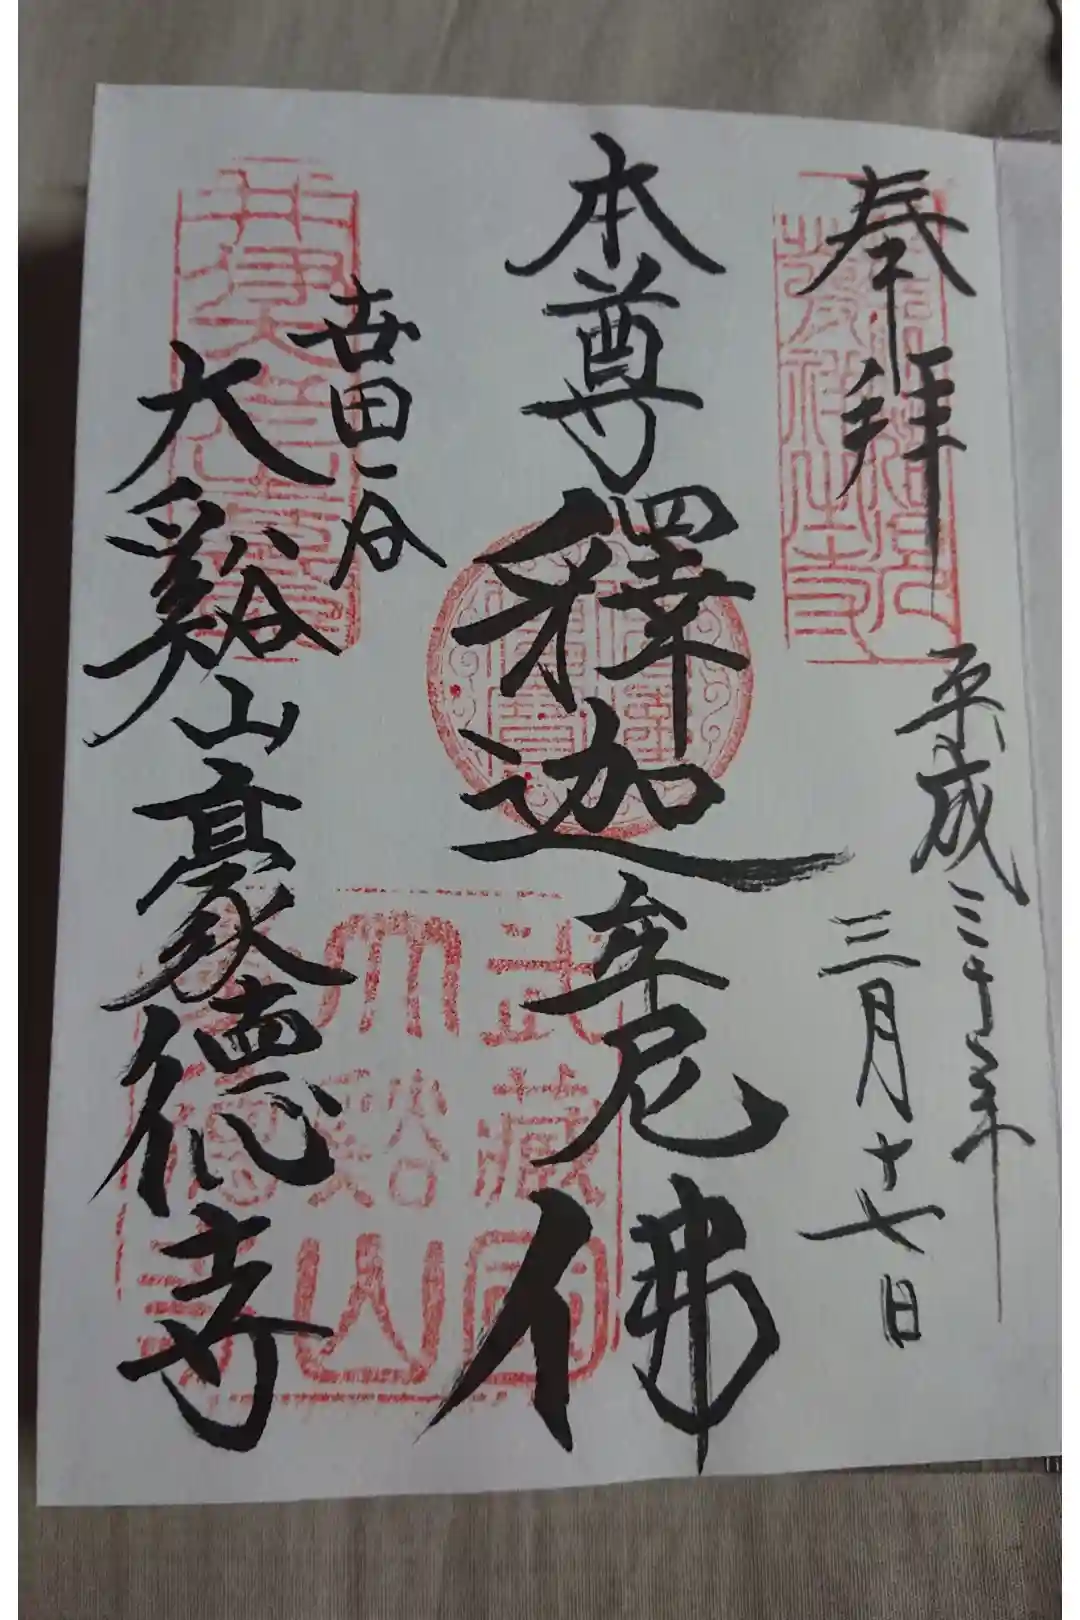 奉拜
平成三十年
三月十七日
本尊釋迦牟尼佛
世田谷
大谿山豪德寺
武藏國
大谿山
豪德寺